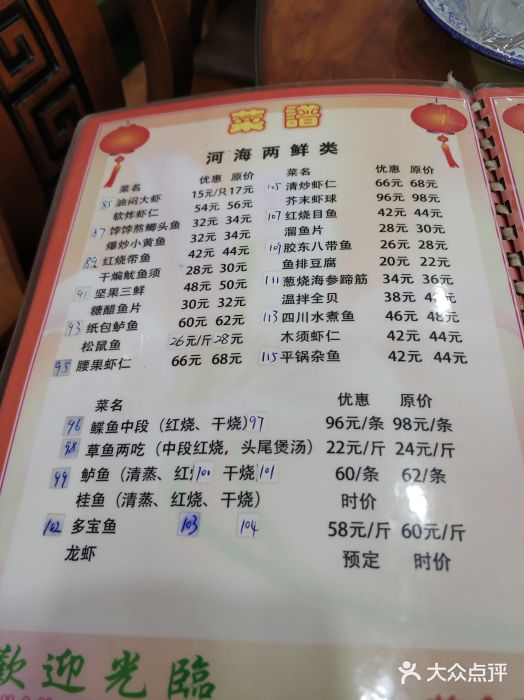 菜譜
河海两鲜类
菜名 优惠 原价
85 油闷大虾 15元/只 17元
软炸虾仁 54元 56元
87 饽饽熬鲫头鱼 32元 34元
爆炒小黄鱼 32元 34元
89 红烧带鱼 42元 44元
干煸鱿鱼须 28元 30元
91 坚果三鲜 48元 50元
糖醋鱼片 30元 32元
93 纸包鲈鱼 60元 62元
松鼠鱼 26元/斤 28元
95 腰果虾仁 66元 68元
菜名 优惠 原价
105 清炒虾仁 66元 68元
芥末虾球 96元 98元
107 红烧目鱼 42元 44元
溜鱼片 28元 30元
109 胶东八带鱼 26元 28元
鱼排豆腐 20元 22元
111 葱烧海参蹄筋 34元 36元
温拌全贝 38元 4元
113 四川水煮鱼 46元 48元
木须虾仁 42元 44元
115 平锅杂鱼 42元 44元
菜名 优惠 原价
96 鲽鱼中段(红烧、干烧) 97 96元/条 98元/条
98 草鱼两吃(中段红烧,头尾煲汤) 22元/斤 24元/斤
99 鲈鱼(清蒸、红 100 干烧 101 60/条 62/条
桂鱼(清蒸、红烧、干烧) 时价
102 多宝鱼 103 104 58元/斤 60元/斤
龙虾 预定 时价
歡迎光臨
大众点评